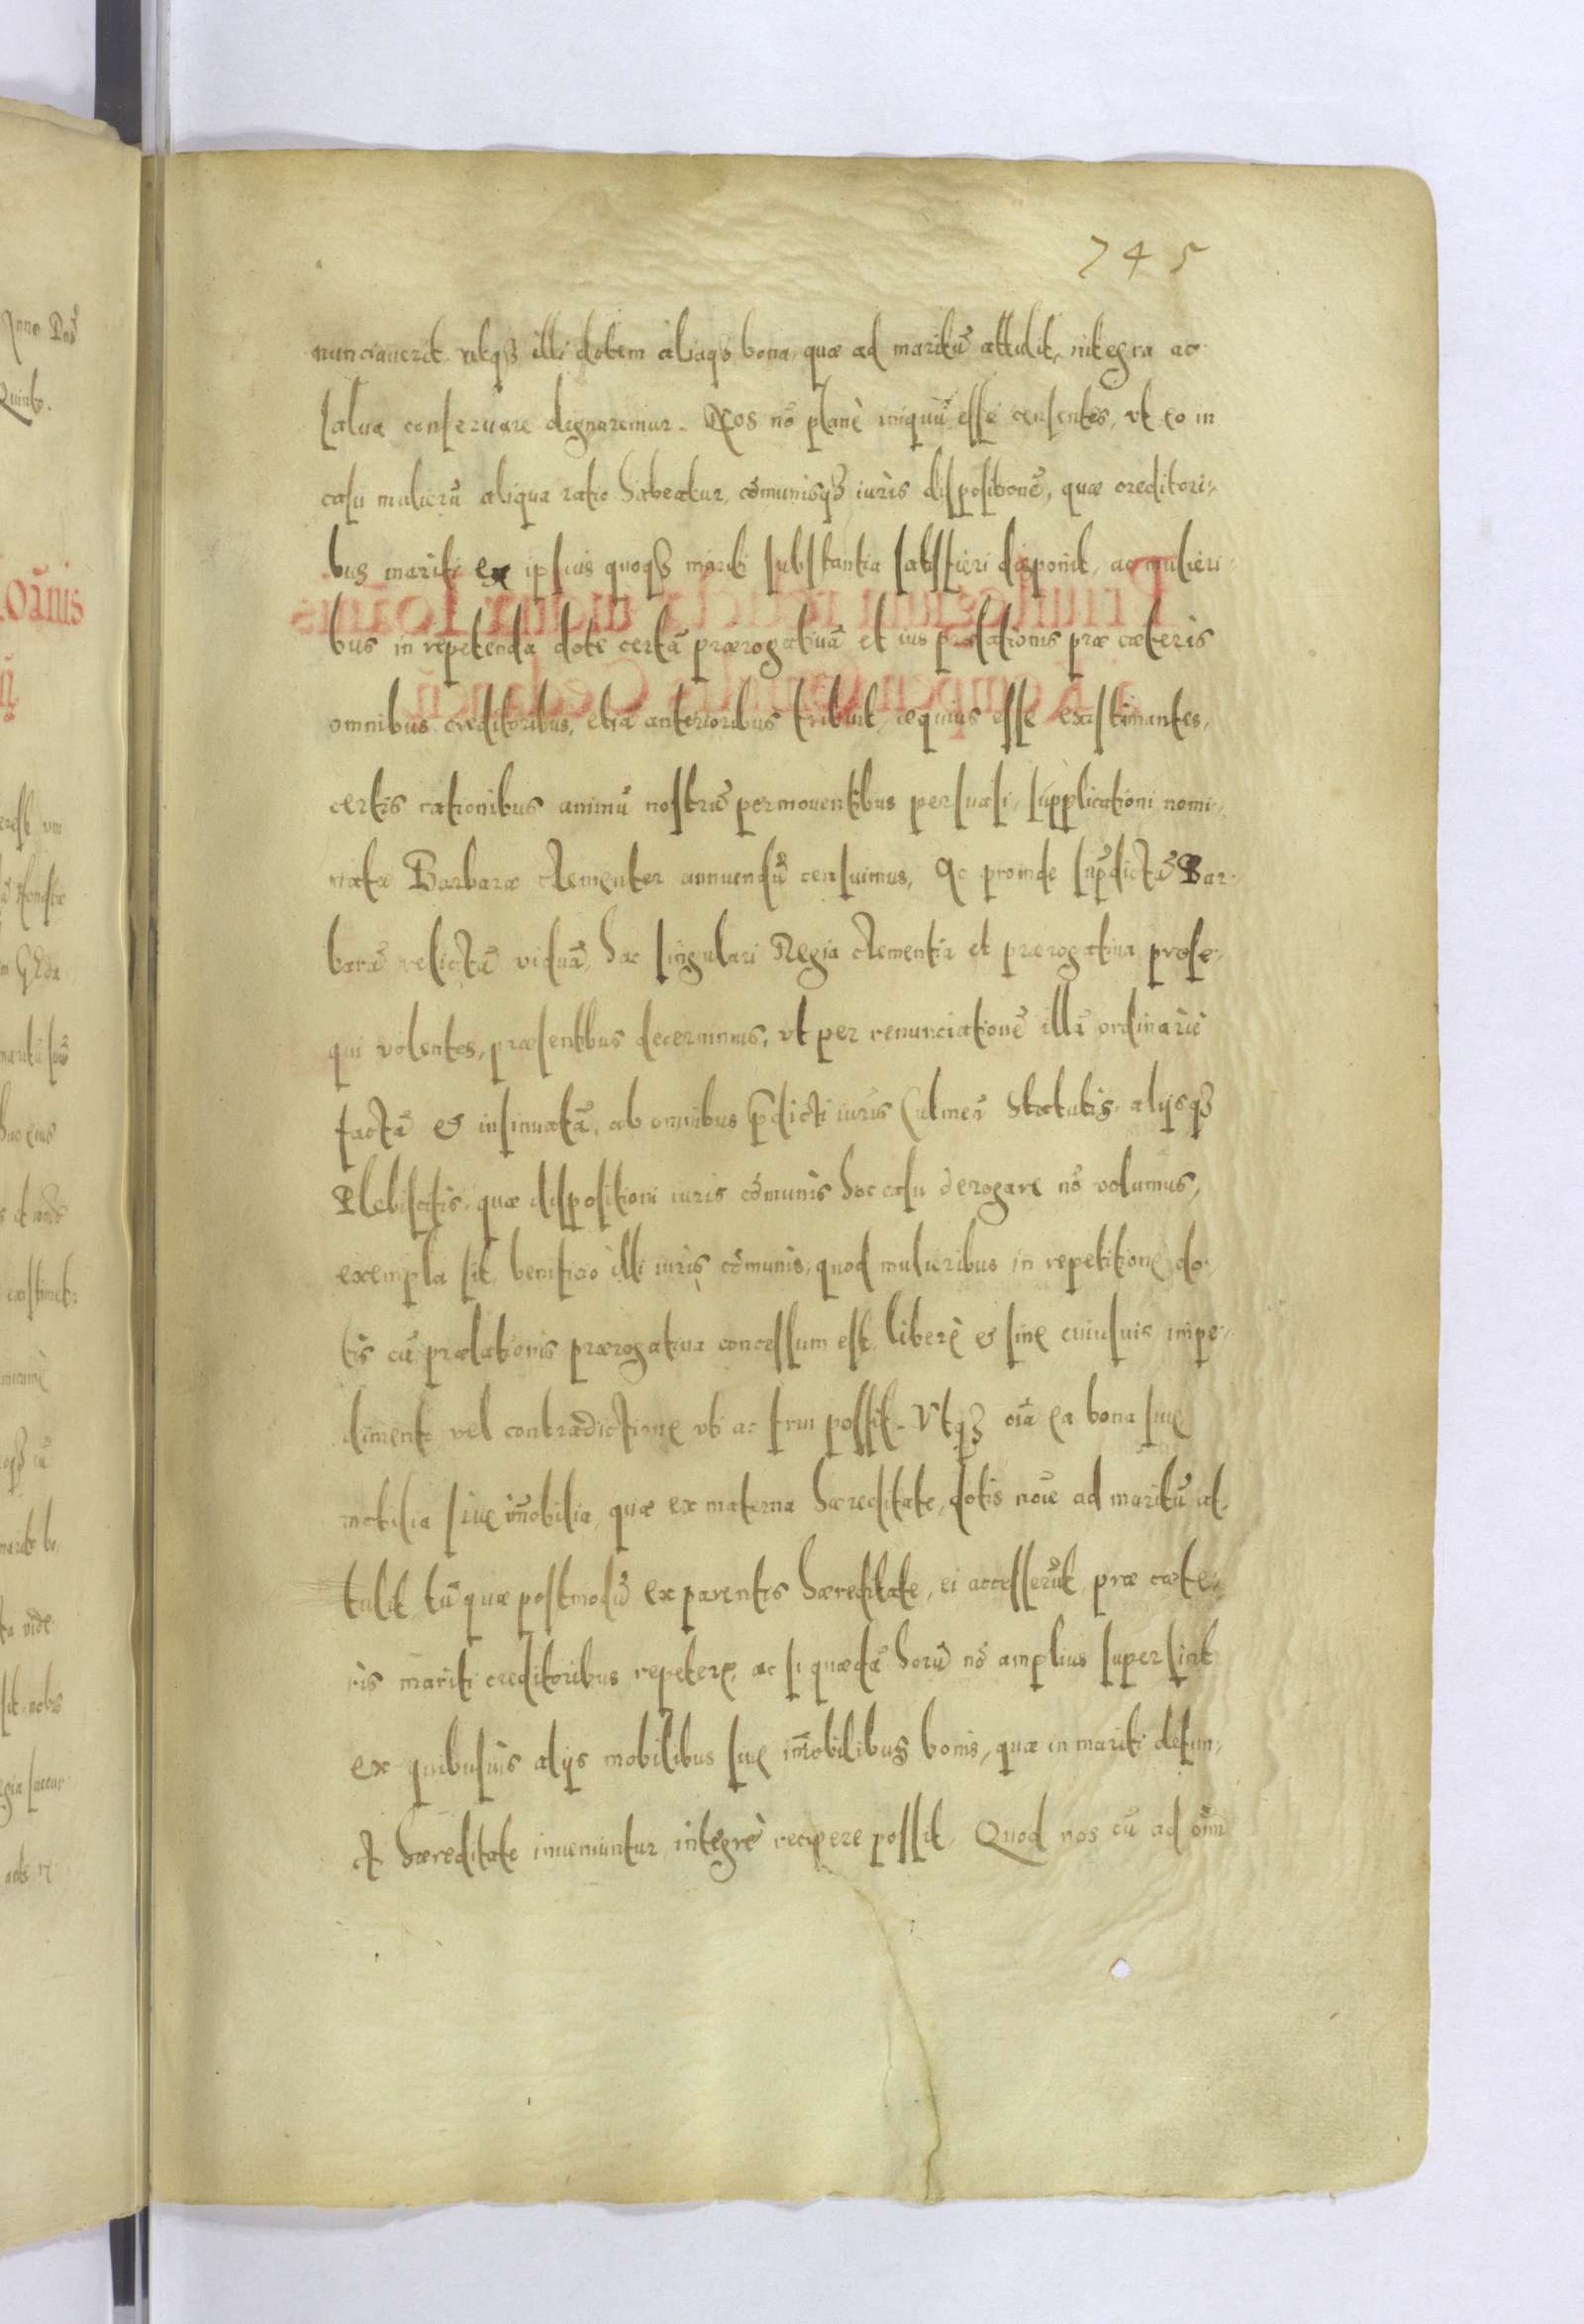 745
nunciauerit, utqꝫ illi dotem aliaqꝫ bona, quæ ad maritū attulit, integra ac
salua conseruare dignaremur. Nos nō planè iniquū esse censentes, vt eo in
casu mulierū aliqua ratio habeatur, cōmunisqꝫ iuris dispositionē, quæ creditori-
bus mariti ex ipsius quoqꝫ mariti substantia satisfieri disponit, ac mulieri-
bus in repetenda dote certā prærogatiuā et ius prælationis præ cæteris
omnibus creditoribus, etiā anterioribus tribuit, æquius esse existimantes,
certis rationibus animū nostrū permouentibus persuasi, supplicationi nomi-
natæ Barbaræ clementer annuendū censuimus, Ac proinde sup̄dictā Bar-
barā relictā viduā, hac singulari Regia clementia et prærogatiua prose-
qui volentes, præsentibus decernimus, vt per renunciationē illā ordinariè
factā & insinuatā, ab omnibus p̄dicti iuris Culmeñ Statutis, alijsqꝫ
Plebiscitis, quæ dispositioni iuris cōmunis hoc casu derogare nō volumus,
exempta sit, beneficio illi iuris cōmunis, quod mulieribus in repetitione do-
tis cū prælationis prærogatiua concessum est, liberè & sine cuiusuis impe-
dimento vel contradictione vti ac frui possit. Vtqꝫ oīa ea bona siue
mobilia siue im̄obilia, quæ ex materna hæreditate, dotis noīe ad maritū at-
tulit, tū quæ postmodū ex parentis hæreditate, ei accesserūt præ cæte-
ris mariti creditoribus repetere, ac si quædā horū nō amplius supersint
ex quibusuis alijs mobilibus siue im̄obilibus bonis, quæ in mariti defun-
cti hæreditate inueniuntur, integrè recipere possit. Quod nos cū ad oīm